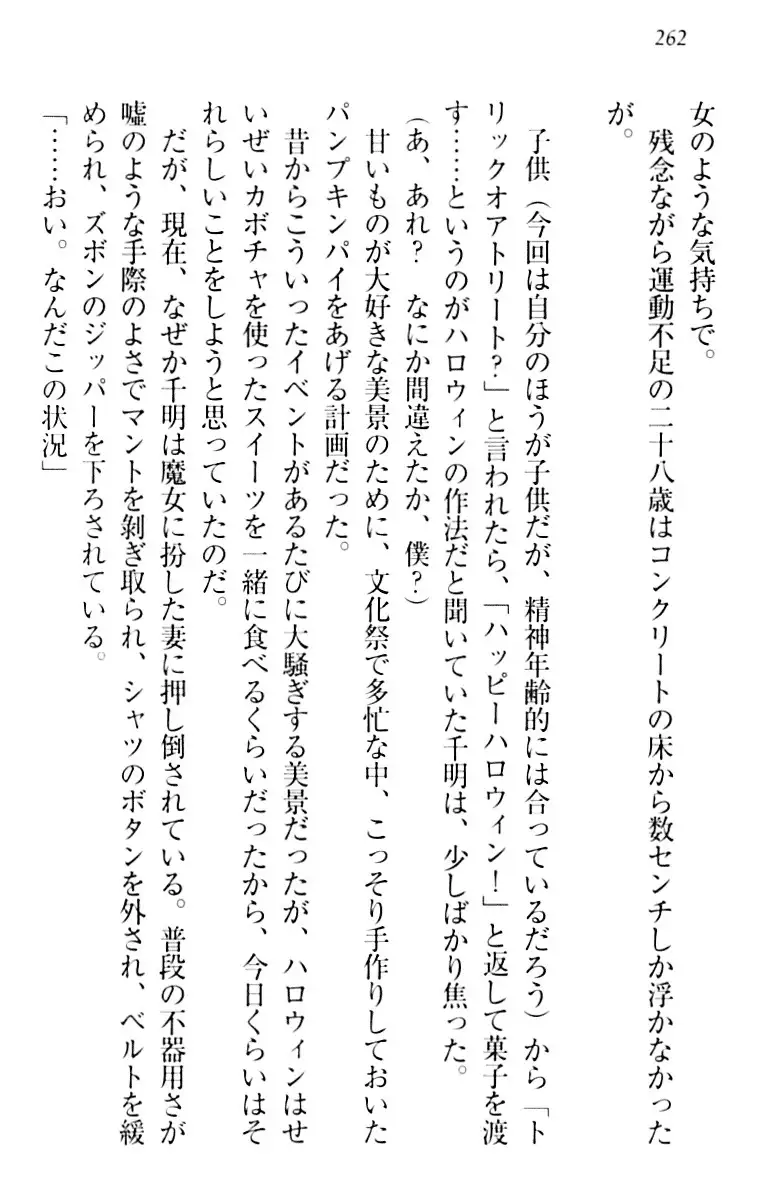 262
女のような気持ちで。
残念ながら運動不足の二十八歳はコンクリートの床から数センチしか浮かなかった
が。
子供（今回は自分のほうが子供だが、精神年齢的には合っているだろう）から「ト
リックオアトリート?」と言われたら、「ハッピーハロウィン!」と返して菓子を渡
す……というのがハロウィンの作法だと聞いていた千明は、少しばかり焦った。
（あ、あれ?　なにか間違えたか、僕?）
甘いものが大好きな美景のために、文化祭で多忙な中、こっそり手作りしておいた
パンプキンパイをあげる計画だった。
昔からこういったイベントがあるたびに大騒ぎする美景だったが、ハロウィンはせ
いぜいカボチャを使ったスイーツを一緒に食べるくらいだったから、今日くらいはそ
れらしいことをしようと思っていたのだ。
だが、現在、なぜか千明は魔女に扮した妻に押し倒されている。普段の不器用さが
嘘のような手際のよさでマントを剝ぎ取られ、シャツのボタンを外され、ベルトを緩
められ、ズボンのジッパーを下ろされている。
「……おい。なんだこの状況」